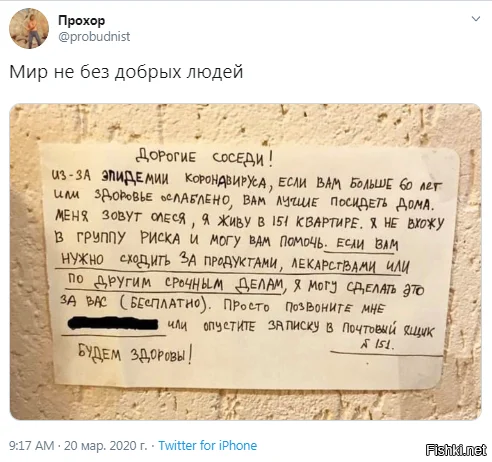 Прохор
@probudnist
Мир не без добрых людей
ДОРОГИЕ СОСЕДИ!
ИЗ-ЗА ЭПИДЕМИИ КОРОНАВИРУСА, ЕСЛИ ВАМ БОЛЬШЕ 60 ЛЕТ
ИЛИ ЗДОРОВЬЕ ОСЛАБЛЕНО, ВАМ ЛУЧШЕ ПОСИДЕТЬ ДОМА.
МЕНЯ ЗОВУТ ОЛЕСЯ, Я ЖИВУ В 151 КВАРТИРЕ. Я НЕ ВХОЖУ
В ГРУППУ РИСКА И МОГУ ВАМ ПОМОЧЬ. ЕСЛИ ВАМ
НУЖНО СХОДИТЬ ЗА ПРОДУКТАМИ, ЛЕКАРСТВАМИ ИЛИ
ПО ДРУГИМ СРОЧНЫМ ДЕЛАМ, Я МОГУ СДЕЛАТЬ ЭТО
ЗА ВАС (БЕСПЛАТНО). ПРОСТО ПОЗВОНИТЕ МНЕ
ИЛИ ОПУСТИТЕ ЗАПИСКУ В ПОЧТОВЫЙ ЯЩИК
№ 151.
БУДЕМ ЗДОРОВЫ!
9:17 AM · 20 мар. 2020 г. · Twitter for iPhone
Fishki.net